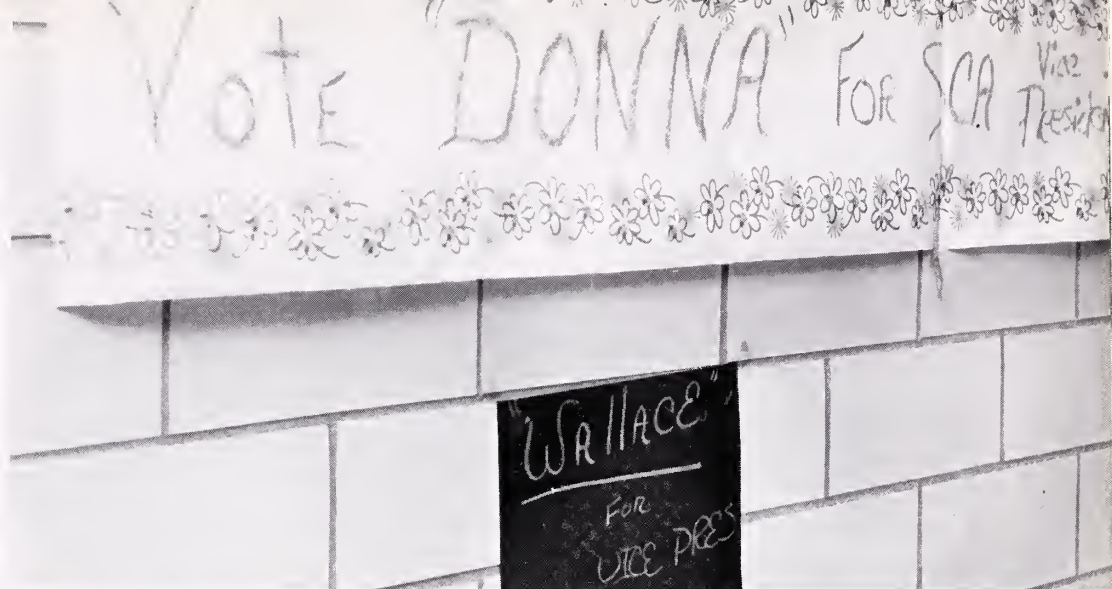 Vote "DONNA" FOR SCA Vice
President
"WALLACE"
FOR
VICE PRES